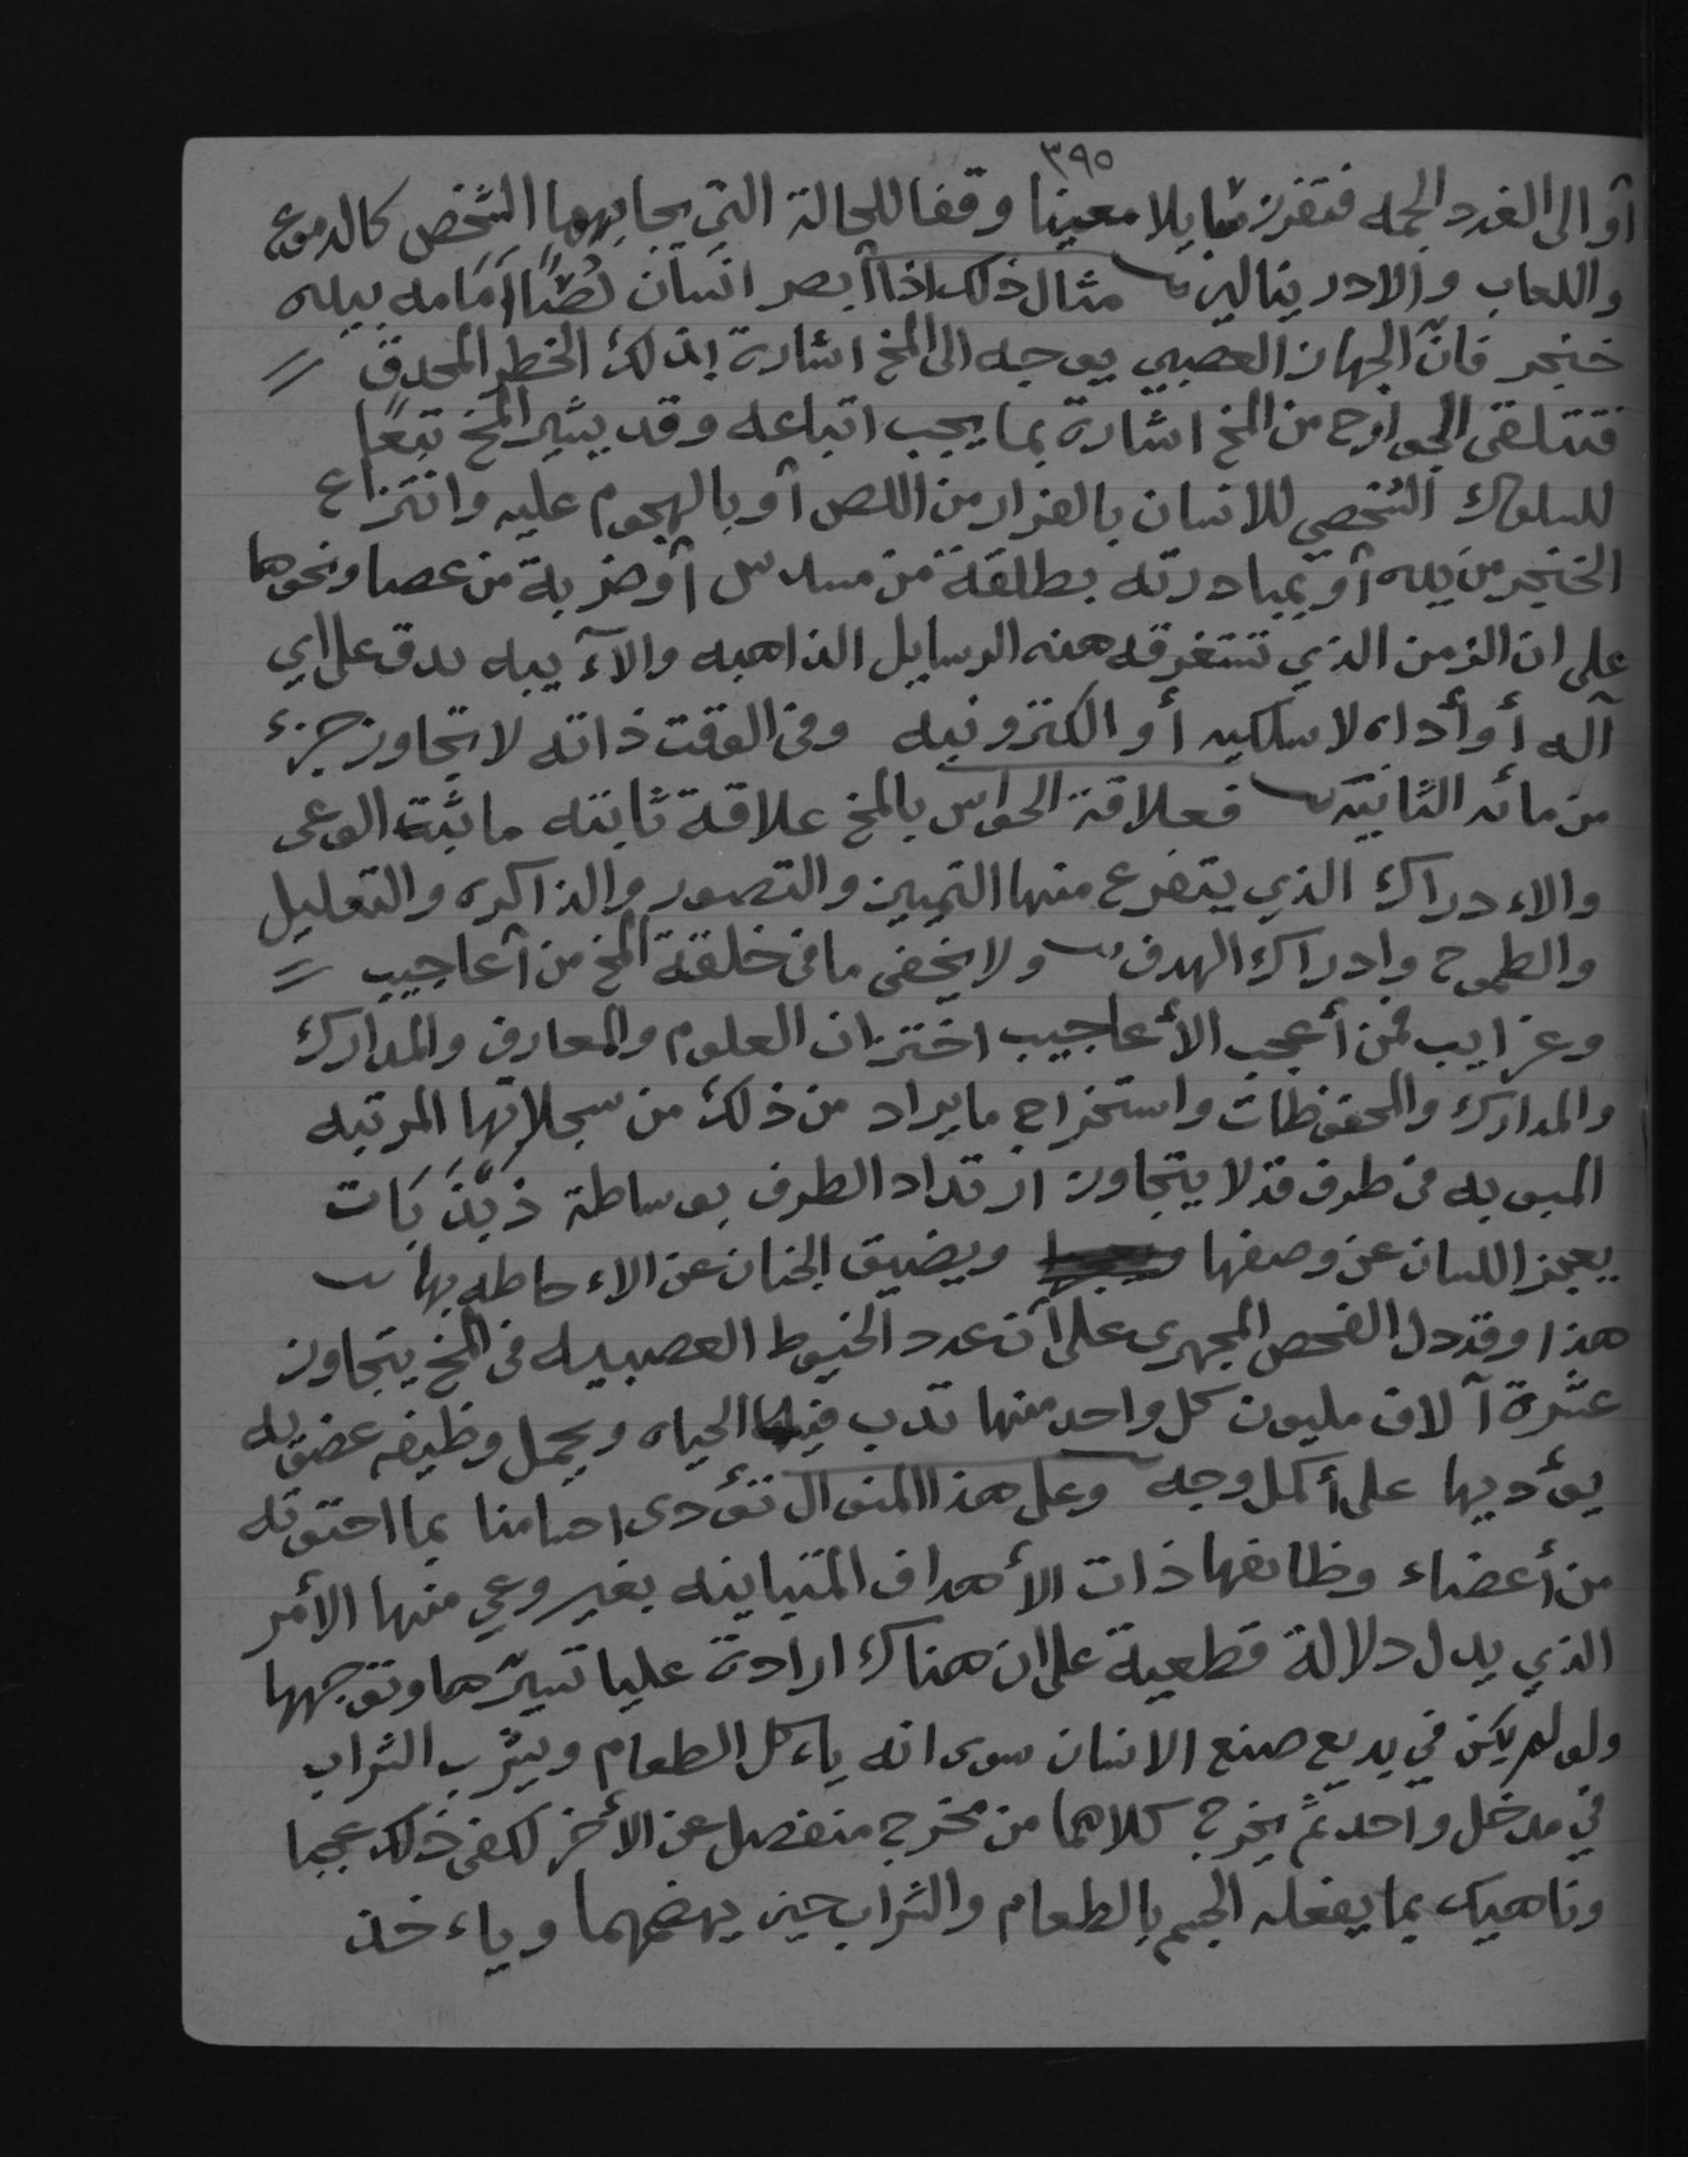 ٣٩٥
أو الى الغدد الجمه فتفرز سايلا معينا وقفا للحالة التي يجابهها الشخص كالدموع
واللعاب والادرينالين مثال ذلك اذا أبصر انسان لصًا أمامه بيده
خنجر فانّ الجهاز العصبي يوجه الى المخ اشارة بذلك الخطر المحدق
فتتلقى الجوارح من المخ اشارة بما يجب اتباعه وقد يشير المخ تبعًا
للسلوك الشخصي للانسان بالفرار من اللص أو بالهجوم عليه وانتزاع
الخنجر من يده أو بمبادرته بطلقة من مسدس أو ضربة من عصا ونحوها
على ان الزمن الذي تستغرقه هذه الرسايل الذاهبه والآيبه يدق على اي
آله أو أداه لاسلكيه أو الكترونيه وفى الوقت ذاته لا يتجاوز جزء
من مائه الثانيه فعلاقة الحواس بالمخ علاقة ثابته ما ثبت الوعى
والاءدراك الذي يتفرع منها التمييز والتصور والذاكره والتعليل
والطموح وادراك الهدف ولا يخفى ما فى خلقة المخ من أعاجيب
وغرايب فمن أعجب الأعاجيب اختزان العلوم والمعارف والمدارك
والمدارك والمحفوظات واستخراج ما يراد من ذلك من سجلاتها المرتبه
المبوبه فى ظرف قد لا يتجاوز ارتداد الطرف بوساطة ذبذبات
يعجز اللسان عن وصفها ويضيق الجنان عن الاءحاطه بها
هذا وقد دل الفحص المجهرى على أن عدد الخيوط العصبيه فى المخ يتجاوز
عشرة آلاف مليون كل واحد منها تدب فيه الحياه ويحمل وظيفه عضويه
يؤديها على أكمل وجه وعلى هذا المنوال تؤدى اجسامنا بما احتوته
من أعضاء وظائفها ذات الأهداف المتباينه بغير وعي منها الأمر
الذي يدل دلالة قطعية على ان هناك ارادة عليا تسيّرها وتوجهها
ولو لم يكن في بديع صنع الانسان سوى انه ياءكل الطعام ويشرب الشراب
في مدخل واحد ثمّ يخرج كلاهما من مخرج منفصل عن الأخر لكفى ذلك عجبا
وناهيك بما يفعله الجسم بالطعام والشراب حين يهضمهما وياءخذ